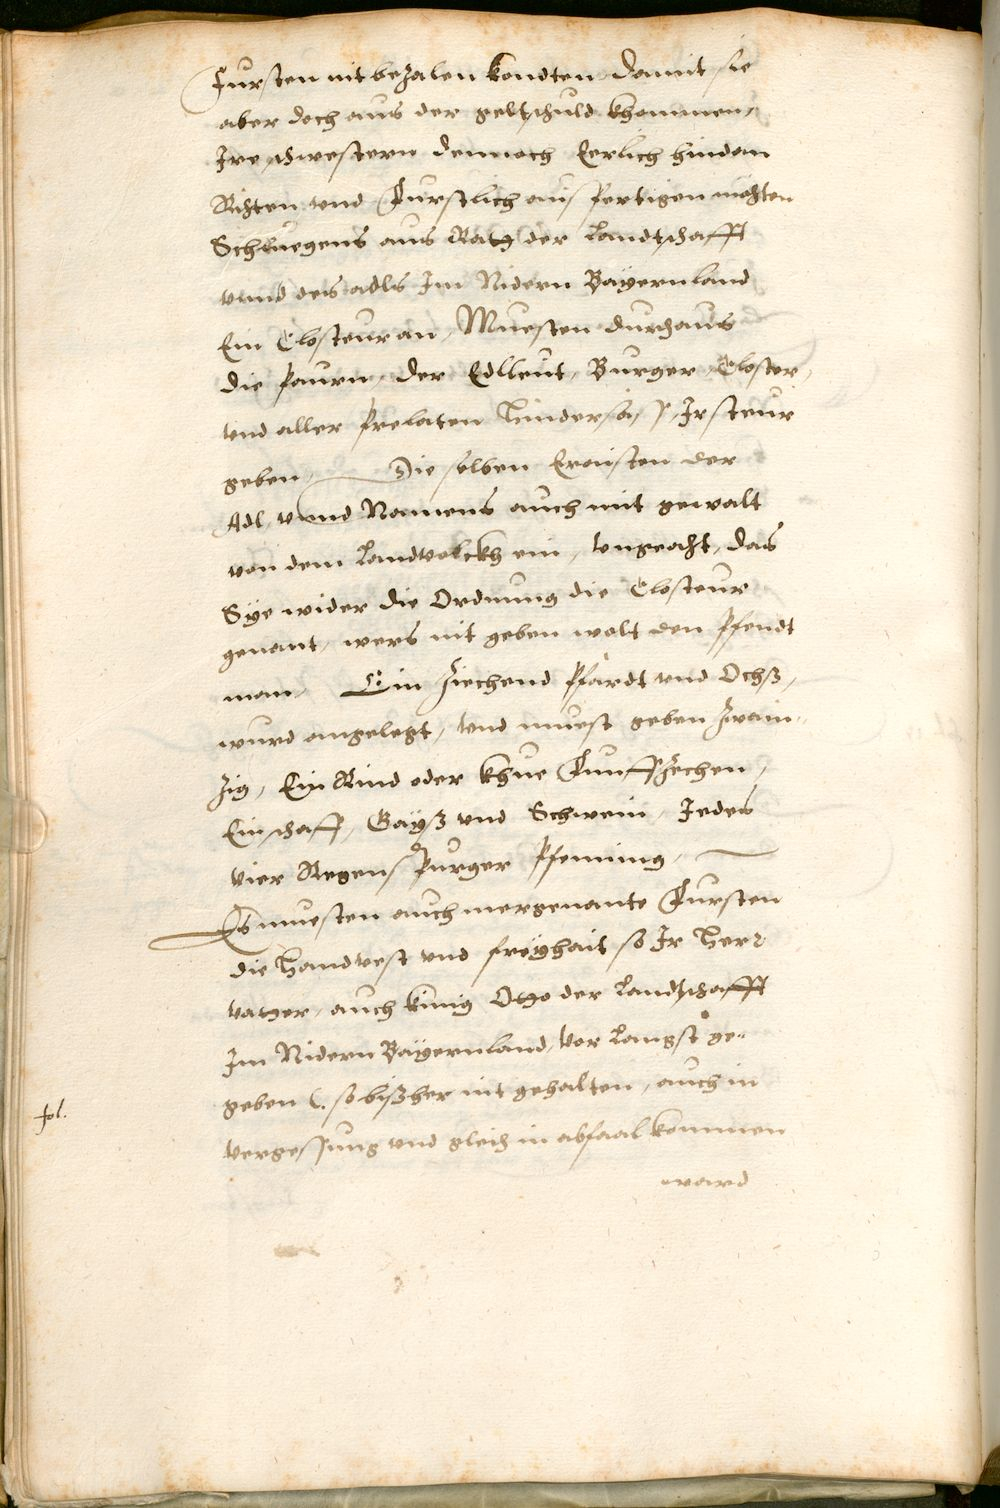 Fursten nit bezalen kondten, damit sie
aber doch aus der geltschuld khommen,
Ire schwestern dennoch Eerlich hindan
Richten vnd Furstlich aus fertigen mochten
Schluegens aus Rath der Landtschafft
vnnd des adls Im Nidern Bayernland
Ein Closteur an, Muesten durchaus
die paurn, der Edlleut, Burger, Closter,
vnd aller prelaten hindersäss, Ir steur
geben, Die selben Eraisten der
Adl, vnnd Namens auch mit gewalt
von dem Landvolckh ein, vngeacht, das
Sye wider die Ordnung die Closteur
genant, wers nit geben wolt den Pfendt
man, Ein ziechend Pfärdt vnd Ochß,
wurd angelegt, vnd muest geben zwain-
zig, Ein Rind oder khue Funffzechen,
Ein schaff, Gayß vnd Schwein, Jedes
vier Regenspurger Pfenning,
Es muesten auch mergenante Fursten
die handtvest vnd freyhait so Ir herr
vatter, auch kunig Otto der Landtschafft
Im Nidern Bayernland, vor Langst ge-
geben (so bißher nit gehalten, auch in
fol.
vergessung vnd gleich in abfaal kommen
ward